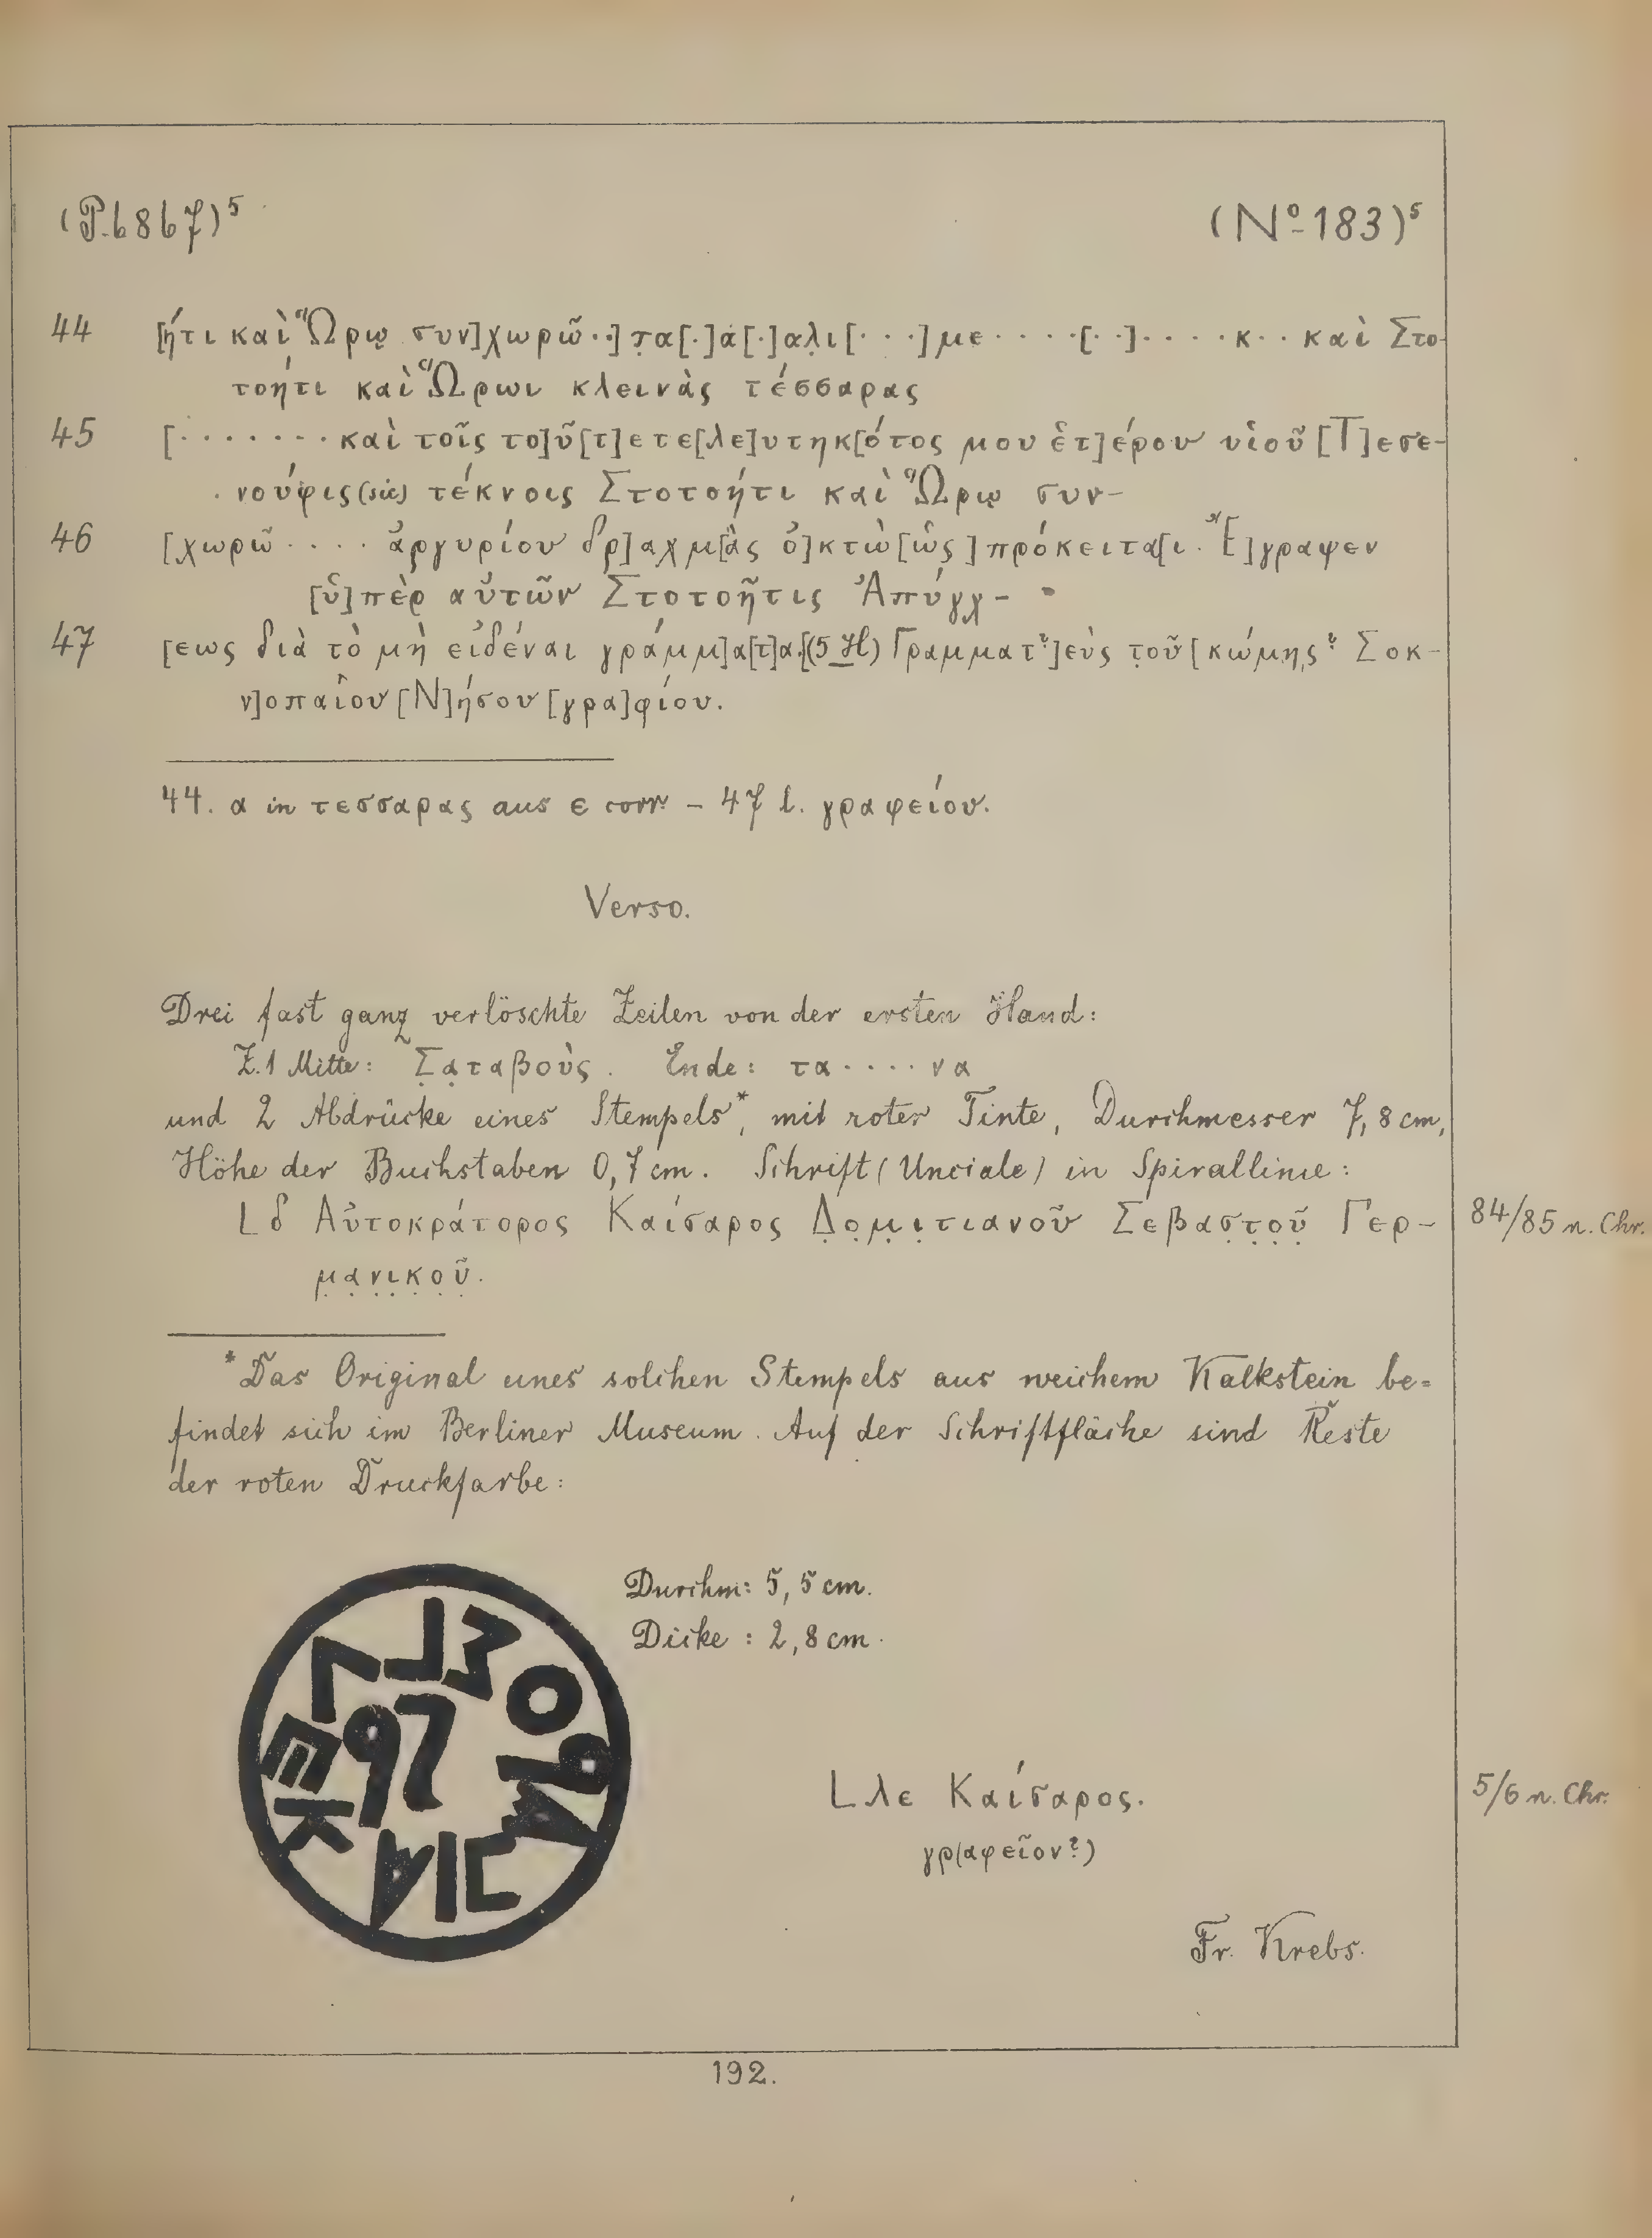 (P. 6867)⁵ (Nº 183)⁵
44 [ήτι καὶ Ὥρῳ συν]χωρῶ··] τα[·]α[·]αλι[···]με····[··]····κ·· καὶ Στο-
τοήτι καὶ Ὥρωι κλεινὰς τέσσαρας
45 [·······καὶ τοῖς το]ῦ [τ]ετε[λε]υτηκ[ότος μου ἑτ]έρου υἱοῦ [Τ]εσε-
νούφις (sic) τέκνοις Στοτοήτι καὶ Ὥρῳ συν-
46 [χωρῶ ···· ἀργυρίου δρ]αχμ[ὰς ὀ]κτὼ [ὡς] πρόκειτα[ι. Ἔ]γραψεν
[ὑ]πὲρ αὐτῶν Στοτοῆτις Ἀπύγχ-
47 [εως διὰ τὸ μὴ εἰδέναι γράμμ]α[τ]α. [(5 H) Γραμματ?]εὺς τοῦ [κώμης? Σοκ-
ν]οπαίου [Ν]ήσου [γρα]φίου.
44. α in τεσσαρας aus ε corr. – 47 l. γραφείου.
Verso.
Drei fast ganz verlöschte Zeilen von der ersten Hand:
Z. 1 Mitte: Σ̣α̣ταβοὺς. Ende: τα····να
und 2 Abdrücke eines Stempels*, mit roter Tinte, Durchmesser 7,8 cm,
Höhe der Buchstaben 0,7 cm. Schrift (Unciale) in Spirallinie:
L δ Αὐτοκράτορος Καίσαρος Δ̣ο̣μ̣ι̣τιανοῦ Σεβασ̣τ̣ο̣ῦ̣ Γερ- 84/85 n. Chr.
μ̣α̣ν̣ι̣κ̣ο̣ῦ̣.
* Das Original eines solchen Stempels aus weichem Kalkstein be=
findet sich im Berliner Museum. Auf der Schriftfläche sind Reste
der roten Druckfarbe:
Durchm: 5,5 cm.
Dicke: 2,8 cm.
L λε Καίσαρος. 5/6 n. Chr.
γρ(αφεῖον?)
Fr. Krebs.
192.